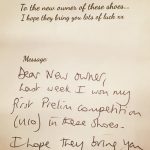 To the new owner of these shoes...
I hope they bring you lots of luck xx
Message
Dear New owner,
Last week I won my
first Prelim competition
(u10) in these shoes.
I hope they bring you